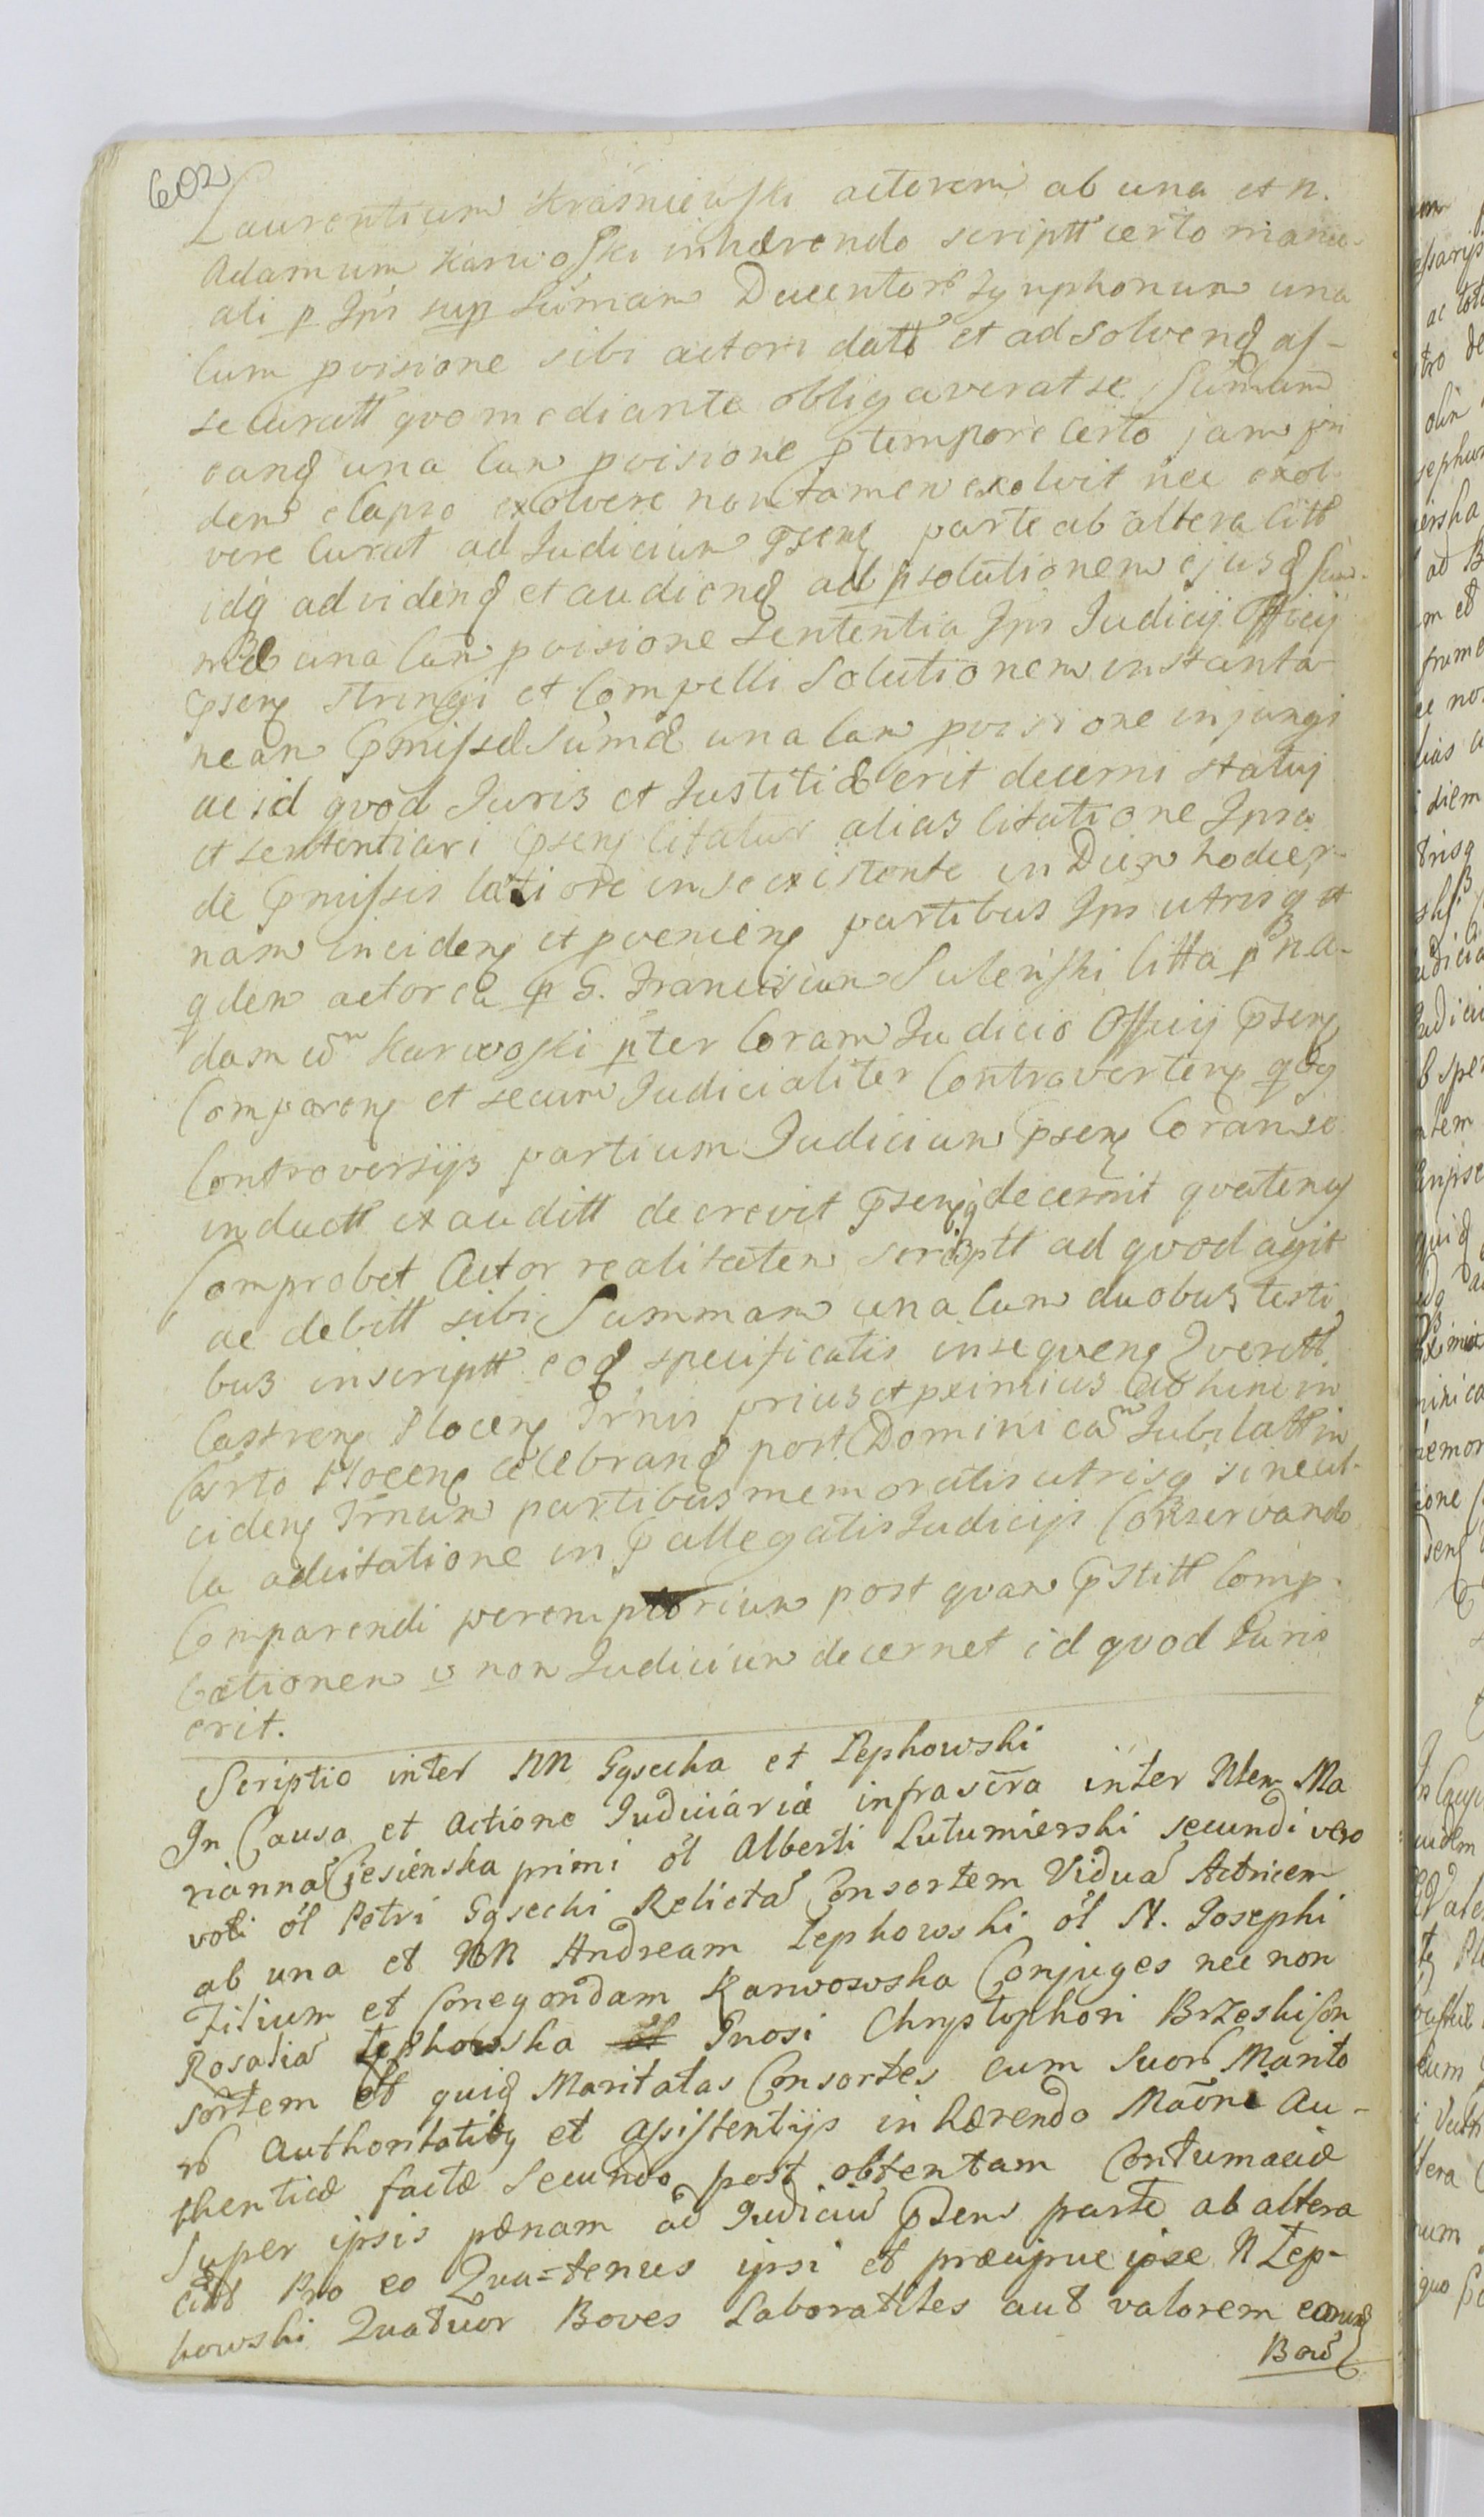 602
Laurentium Krasniewski actorem ab una et n.
Adamum Karwoski inhærendo scriptt certo manu-
ali p Ipm sup Sumam Ducentor Tynphonum una
cum pvisione sibi actori datt et ad solvend as-
securatt quo mediante obligaverat se Sumam
eand una cum pvisione p tempore certo jam pri
dem elapso exolvere non tamen exolvit nec exol-
vere curat ad Judicium pseng parte ab altera citt
idq ad vidend et audiend ad psolutionem ejusd Sum-
mæ una cum pvisione Sententia Ipm Judicij Officij
pseng stringi et compelli Solutionem instanta-
neam pmissæ Sumæ una cum pvisione injungi
ac id quod Juris et Justitiæ erit decerni statuj
et sententiari pseng citatur alias citatione Ipsa
de pmissis latiore in se existente in Diem hodier-
nam incideng et pvenieng partibus Ipis utrisq et
qdem actorea p G. Franciscum Sulenski citta p n. A-
dam um Karwoski pter Coram Judicio Officij pseng
Compareng et secum Judicialiter Controverteng qbg
Controversijs partium Judicium pseng Coram se
inductt exauditt decrevit psengq decernit quateng
Comprobet Actor realitatem scriptt ad quod agit
ac debitt sibi Summam una cum duobus testi
bus in scriptt eod specificatis in sequeng Querett
Castreng Ploceng Trnis prius et pximius ab hinc in
Castro Ploceng celebrand post Dominicam Jubilatt in
cideng Trnum partibus memoratis utrisq sine ul-
la adcitatione in p allegatis Judicijs Conservando
Comparendi peremptorium post quam pstitt Comp-
bationem v non Judicium decernet id quod Juris
erit.
Scriptio inter NN Gąsecka et Zephowski
In Causa et Actione Judiciaria infrascra inter Nlem Ma
riannã Ciesienska primi ol Alberti Lutumierski secundi vero
voti ol Petri Gąsecki Relictã Consortem Viduã Actricem
ab una et NN Andream Zephowski ol N. Josephi
Filium et Conegondam Karwowska Conjuges nec non
Rosaliã Zephowska Gnosi Chryptophori Brzeski Con
sortem et quid Maritatas Consortes cum Suor Marito
r Authoritatibg et Assistentijs inhærendo Maõni Au-
thenticæ factæ Secundo post obtentam Contumaciæ
Super ipsis pænam ad Judiciũ psens parte ab altera
citt Pro eo Qua=tenus ipsi et præcipue ipse N Zep-
howski Quatuor Boves Laboratiles aut valorem eorund
Bow